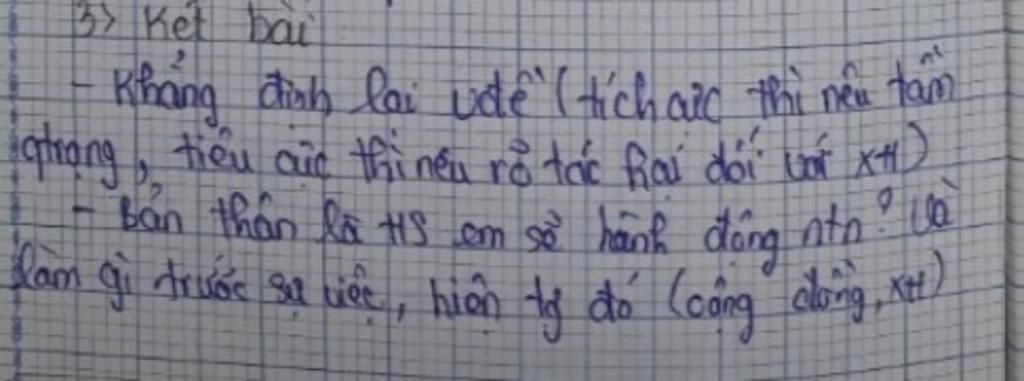 3) Kết bài
- Khẳng định lại vđề (tích cực thì nêu tầm
qtrọng, tiêu cực thì nêu rõ tác hại đối với XH)
- Bản thân là HS em sẽ hành động ntn? Và
làm gì trước sự việc, hiện tg đó (cộng đồng, XH)